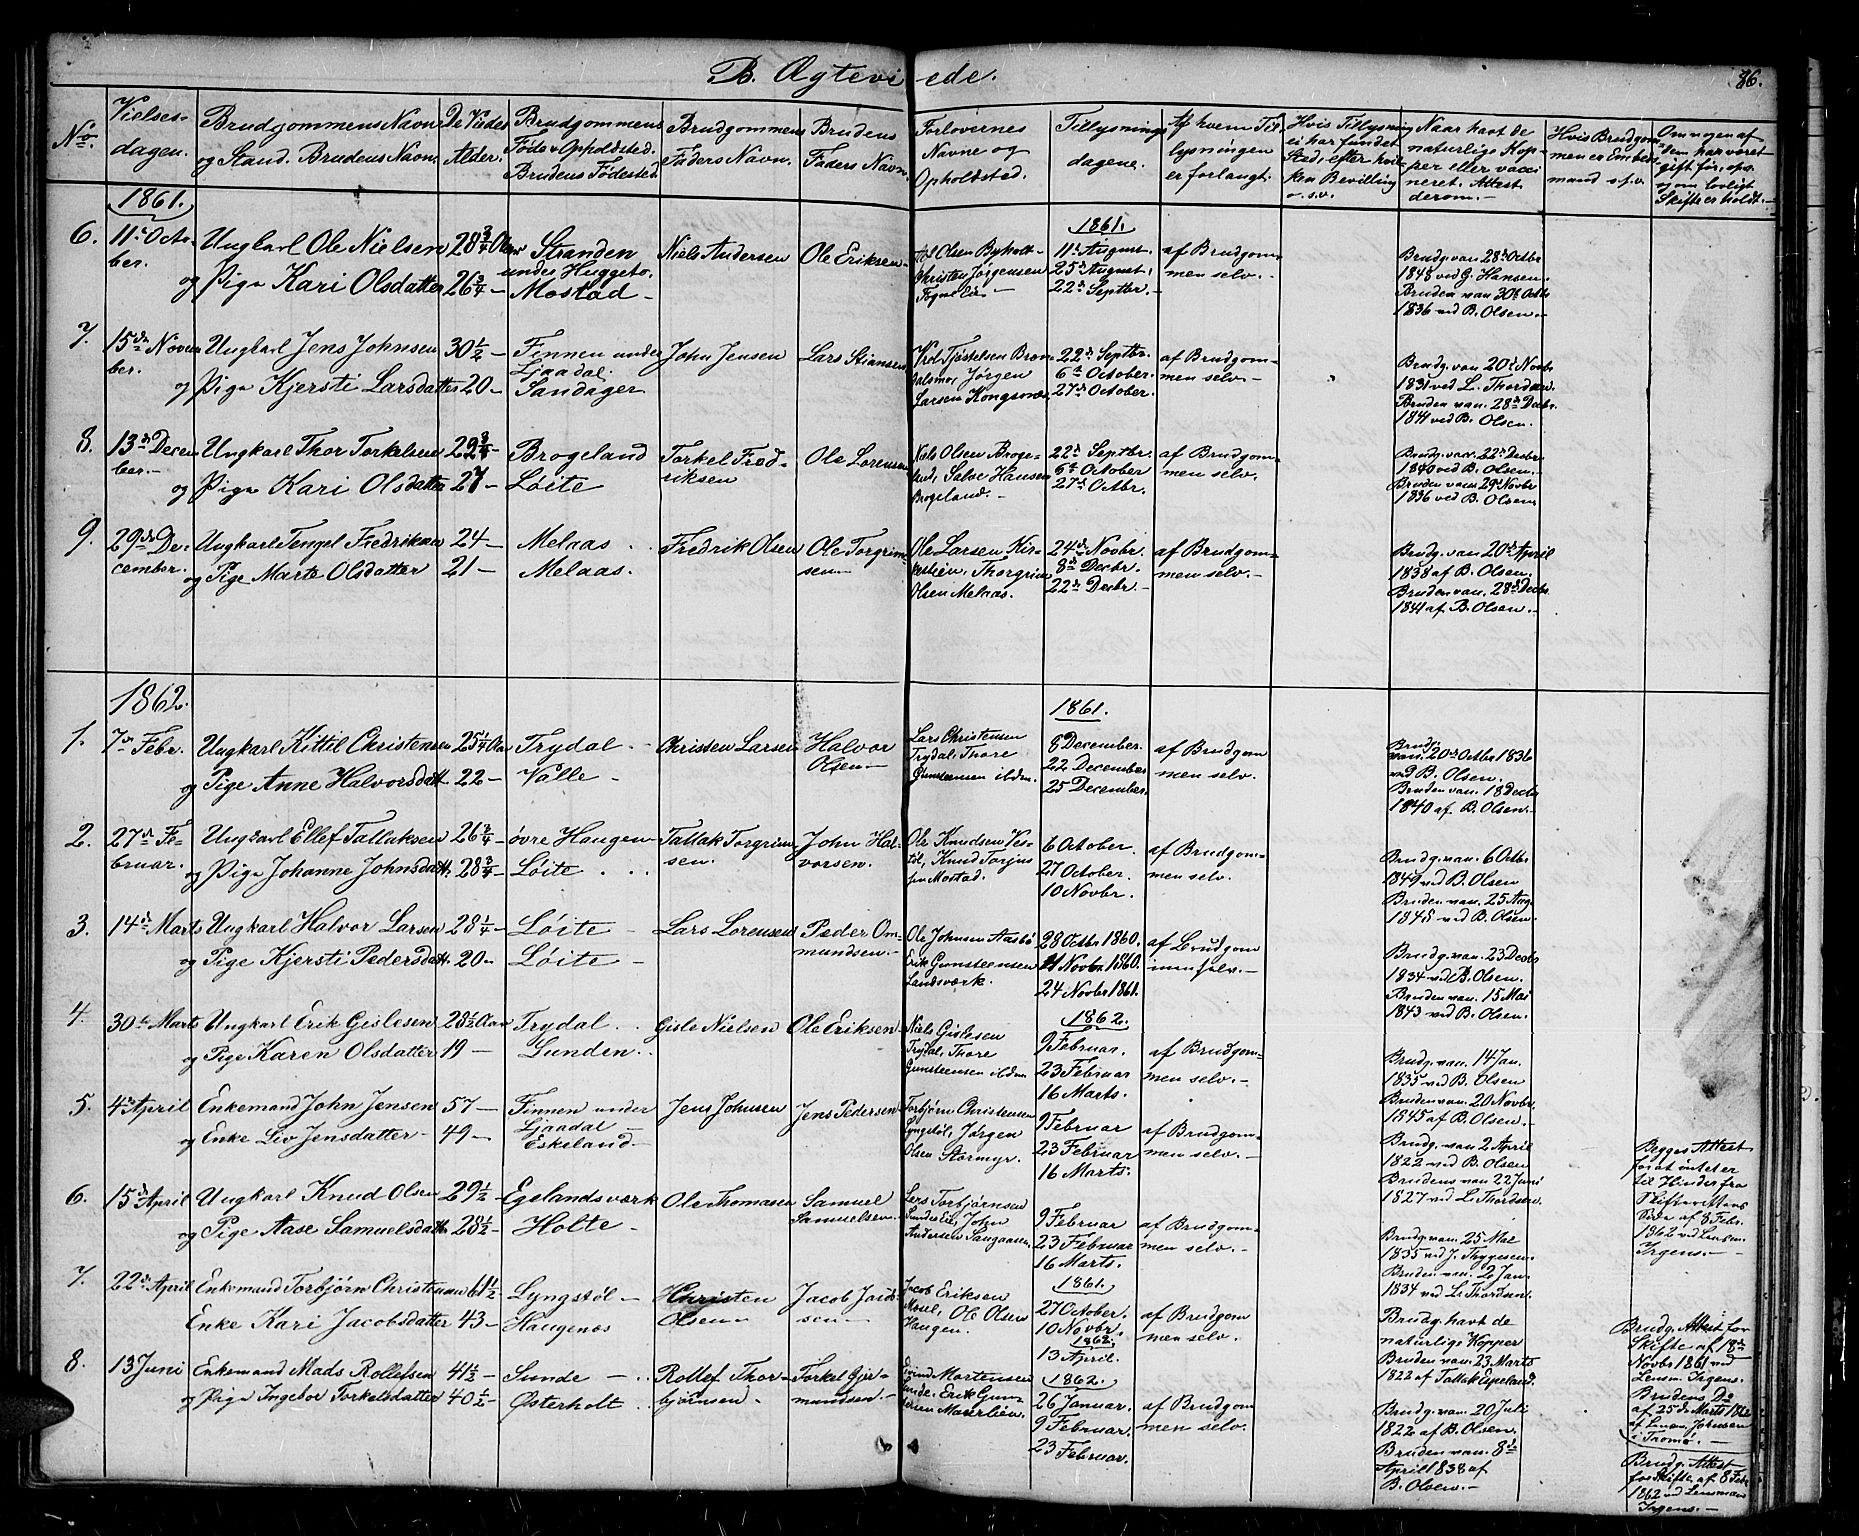 B. Ægteviede.
86.
No.
Vielses-
dagen.
Brudgommens Navn
og Stand. Brudens Navn.
De Viedes
Alder.
Brudgommens
Føde- & Opholdsted.
Brudens Fødested
Brudgommens
Faders Navn.
Brudens
Faders Navn.
Forlovernes
Navne og
Opholdsted.
Tillysnings
dagene.
Af hvem Til-
lysningen
er forlangt.
Hvis Tillysning
ei har fundet
Sted, efter hvil-
ken Bevilling
o. s.v.
Naar havt de
naturlige Kop-
per eller vacci
neret. Attest
derom.-
Hvis Brudgom-
men er Embeds
mand o.s.v.
Om nogen af
dem har været
gift før, og
og om lovligt
Skifte er holdt.-
1861.
1861.
6. 11te Octo-
ber.
Ungkarl Ole Nielsen
og Pige Kari Olsdatter
28 3/4 Aar
26 3/4 -
Stranden
under Huggeto.
Mostad -
Niels Andersen
Ole Eriksen
Olsen Byholt-
Christen Jørgensen
Fognelie -
11te August.
25de August.
22de Septbr. -
af Brudgom-
men selv. -
Brudg. van. 28de Octbr
1848 ved G. Hansen.
Bruden van 30te Octbr
1836 ved B. Olsen. -
7. 15de Novem
ber.
Ungkarl Jens Johnsen
og Pige Kjersti Larsdatter
30 1/2 -
20 -
Finnen under
Ljaadal.
Sandager.
John Jensen
Lars Stiansen
Tjøstelsen Brom-
Jørgen
Larsen Kongsnæs
22de Septbr.
6te October.
27de October.
af Brudgom-
men selv. -
Brudg. van. 20de Novbr
1831 ved L. Thordsen.
Bruden van. 28de Decbr.
1841 ved B. Olsen.
8. 13de Decem
ber. -
Ungkarl Thor Torkelsen
og Pige Kari Olsdatter
29 3/4 -
27 -
Brogeland
Løite
Torkel Fred-
riksen
Ole Lorensen
Niels Olsen Broge-
land, Salve Hansen
Brogeland. -
22de Septbr.
6te October
27de Octbr.
af Brudgom-
men selv. -
Brudg. van. 22de Decbr
1840 ved B. Olsen. -
Bruden van. 29de Novbr
1836 ved B. Olsen
9. 29de De-
cember.
Ungkarl Tengel Fredriksen
og Pige Marte Olsdatter
24 -
21 -
Melaas.
Melaas.
Fredrik Olsen
Ole Torgrim-
sen -
Ole Larsen Kir-
Thorgrim
Olsen Melaas.
24de Novbr.
8de Decbr.
22de Decbr. -
af Brudgom-
men selv. -
Brudg. van. 20de April
1838 af B. Olsen.
Bruden van. 28de Decbr
1841 af B. Olsen. -
1862.
1861.
1. 7de Febr.
Ungkarl Kittil Christensen
og Pige Anne Halvorsdatt.
25 1/4 Aar
22 -
Trydal -
Valle -
Christen Larsen
Halvor
Olsen -
Lars Christensen
Trydal, Thore
Gunsteensen ibdm.
8 December.
22 December
25 December.
af Brudgom
men selv. -
Brudg.
van. 20de Octbr 1836
ved B. Olsen.
Bruden van. 18 Decbr
1840 af B. Olsen. -
2. 27de Fe-
bruar.
Ungkarl Ellef Tallaksen
og Pige Johanne Johnsdatt.
26 3/4 -
28 3/4 -
øvre Haugen
Løite
Tallak Torgrim
sen.
John Hal-
vorsen.
Ole Knudsen Ves-
tøl, Knud Torjus
sen Mostad.
6 October.
27 October.
10 Novbr.
af Brudgom-
men selv.
Brudg. van. 6 Octbr
1849 ved B. Olsen
Bruden van. 25 Aug.
1848 ved B. Olsen.
3. 14de Marts
Ungkarl Halvor Larsen
og Pige Kjersti Pedersdatt.
28 1/4 -
20 -
Løite -
Løite -
Lars Lorensen
Peder Om-
mundsen. -
Ole Johnsen Aasbø
Erik Gunsteensen
Landsværk.
28 Octbr 1860.
11 Novbr. 1860.
24 Novbr 1861.
af Brudgom
men selv. -
Brudg. van. 23 Decbr
1834 ved B. Olsen.
Bruden van. 15 Mai
1843 ved B. Olsen.
4. 30te Marts
Ungkarl Erik Gislesen
og Pige Karen Olsdatter
28 1/2 Aar
19 -
Trydal.
Lunden.
Gisle Nielsen
Ole Eriksen
Niels Gislesen
Trydal, Thore
Gunsteensen ibdm.
1862.
9 Februar.
23 Februar
16 Marts.
af Brudgom-
men selv. -
Brudg. van. 14 Jan.
1835 ved B. Olsen
Bruden van. 20 Novbr.
1845 af B. Olsen. -
5. 4de April
Enkemand John Jensen
og Enke Liv Jensdatter -
57 -
49 -
Finnen under
Ljaadal -
Eskeland -
Jens Johnsen
Jens Pedersen
Torbjørn Christensen
Lyngstøl, Jørgen
Olsen Stormyr.
9 Februar
23 Februar
16 Marts.
af Brudgom-
men selv. -
Brudg. van 2 April
1822 ved B. Olsen
Brudens van 22 Juni
1827 ved L. Thordsen.
Begges Attest
for at Intet er
til Hinder fra
Skifterettens
Side af 8 Febr.
1862 ved Lensm.
Irgens. -
6. 15de April
Ungkarl Knud Olsen
og Pige Aase Samuelsdatt
29 1/2
28 1/2 -
Egelandsværk
Holte -
Ole Thomasen
Samuel
Samuelsen -
Lars Torbjørnsen
John
Andersen
9 Februar
23 Februar
16 Marts.
af Brudgom-
men selv. -
Brudg. van. 25 Mai
1835 ved J. Thygesen.
Bruden van. 2 Jan.
1834 ved L. Thordsen.
7. 22de April
Enkemand Torbjørn Christensen
Enke Kari Jacobsdatter
61 1/2
43 -
Lyngstøl -
Haugenæs
Christen
Olsen -
Jacob
sen -
Jacob Eriksen
Mosel, Ole Olsen
Haugen.
1861.
27 October.
10 Novbr.
1862.
13 April.
af Brudgom
men selv.
Brudg. havt de
naturlige Kopper
Bruden van. 23 Marts
1822 af Tallak Epeland.
Brudg. Attest for
Skifte af 18de
Novbr 1861 ved
Lensm. Irgens.
Brudens Do
af 25de Marts 1862
af Lensm. Johnsen
i Tromø. -
8. 13 Juni
Enkemand Mads Rollefsen
og Pige Ingebor Torkelsdatter
41 1/2 -
40 1/2 -
Sunde -
Østerholt
Rollef Thor-
bjørnsen.
Torkel Gjer-
mundsen. -
Mortensen
Sunde, Erik Gun-
dersen Maserlien.
1862.
26 Januar.
9 Februar.
23 Februar.
af Brudgom
men selv.
Brudg. van. 20 Juli
1822 af B. Olsen.
Bruden van. 8de
April 1838 af
B. Olsen. -
Brudg. Attest
for Skifte af 8 Febr
1862 ved Lensmand
Irgens. -